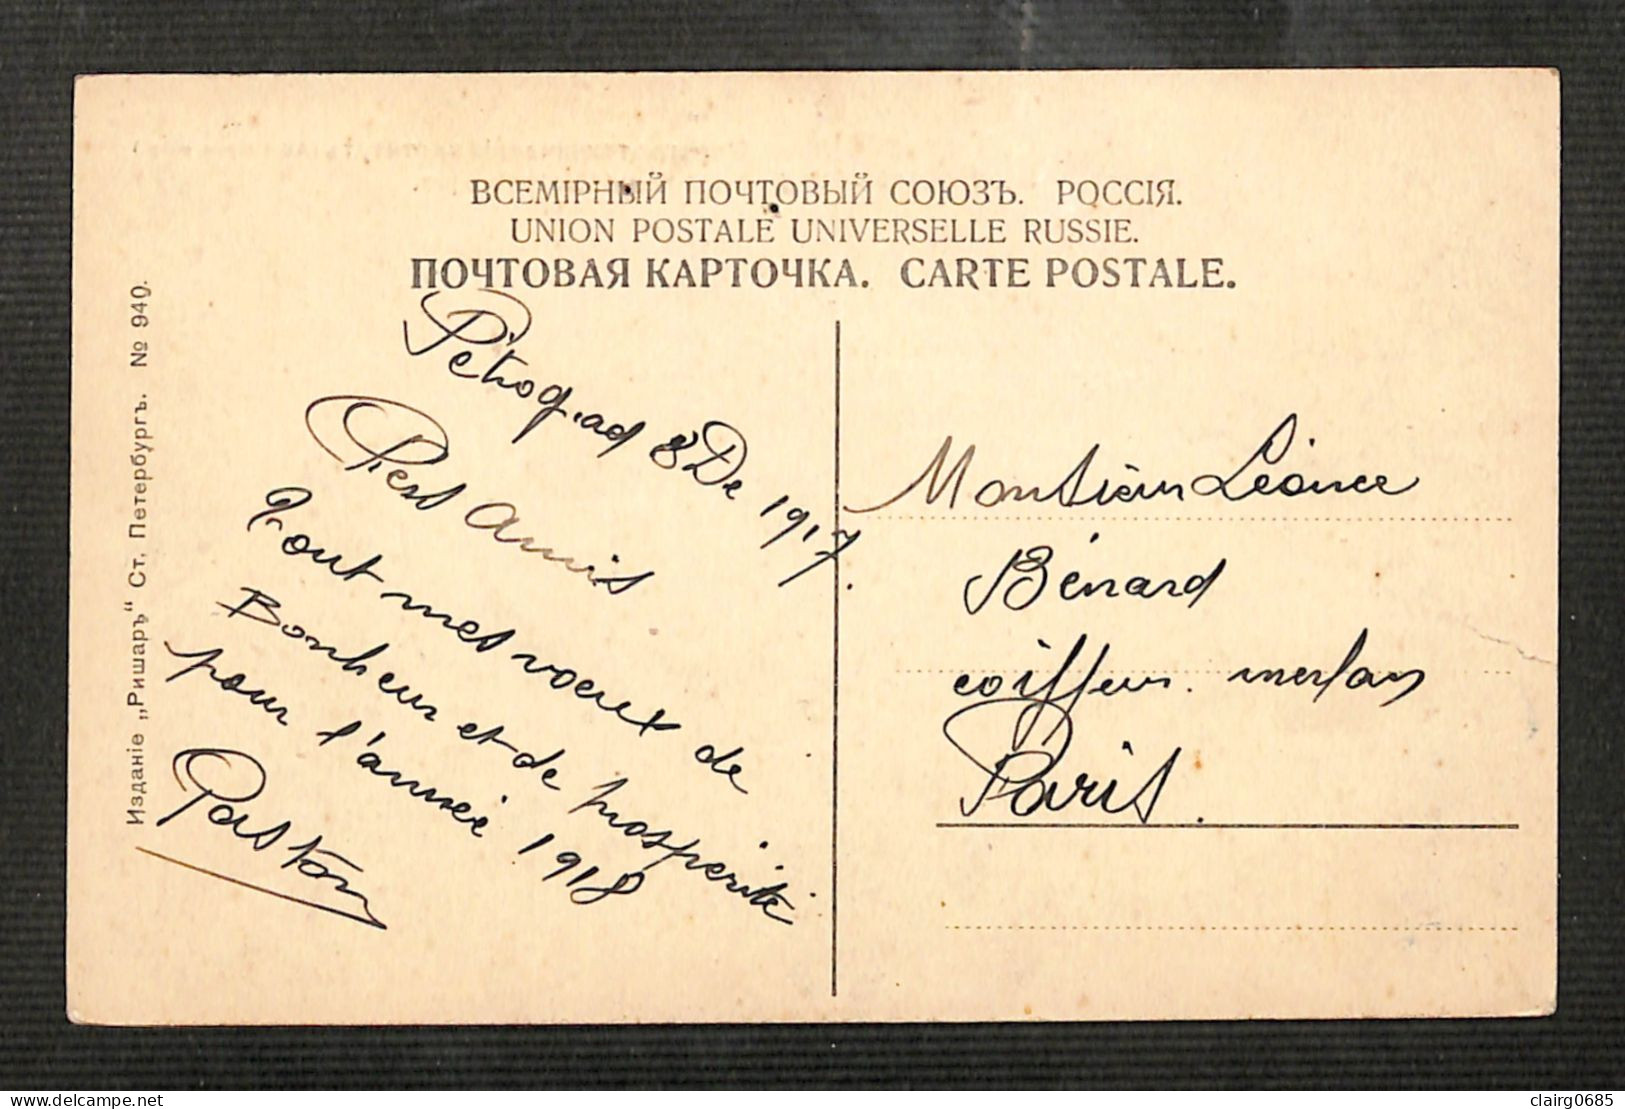 ВСЕМІРНЫЙ ПОЧТОВЫЙ СОЮЗЪ. РОССІЯ.
UNION POSTALE UNIVERSELLE RUSSIE.
ПОЧТОВАЯ КАРТОЧКА. CARTE POSTALE.
Издание „Ришаръ“ Ст. Петербургъ. № 940.
Pétrograd 8 De 1917.
Amis
Tout mes voeux de
Bonheur et de prosperité
pour l'année 1918
Gaston
Monsieur Léonce
Bénard
coiffeur. merlan
Paris.
clairg0685